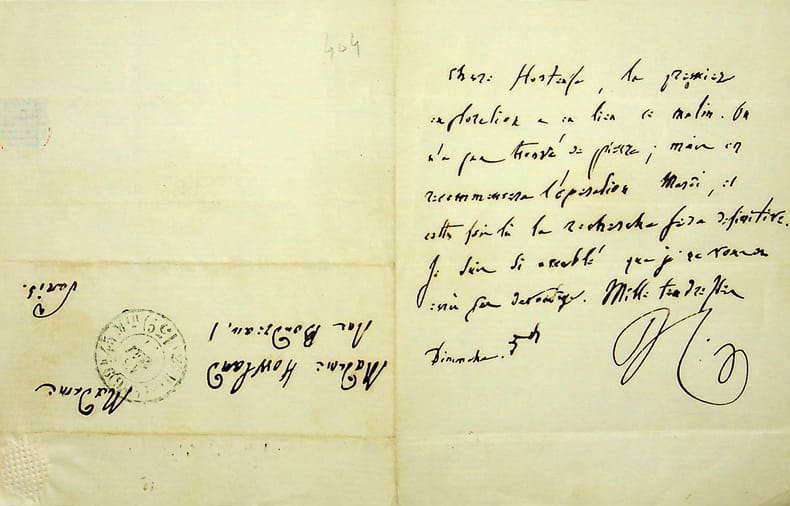 404
Chère Hortense, la première
exploration a eu lieu ce matin. On
n'a pas trouvé de pierre ; mais on
recommencera l'opération Mardi, et
cette fois là la recherche sera définitive.
Je suis si accablé que je ne vous en
écris pas davantage. Mille tendresses
Dimanche. 5h
Madame
Madame Howland
Rue
Paris.